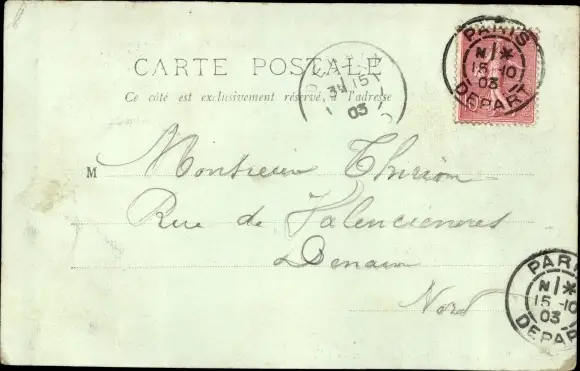 PARIS
N/*
15-10
03
DEPART
CARTE POSTALE
Ce côté est exclusivement réservé à l'adresse
15
03
M Monsieur Thirion
Rue de Valenciennes
Denain
Nord
PARI
N/*
15-10
03
DEPAR